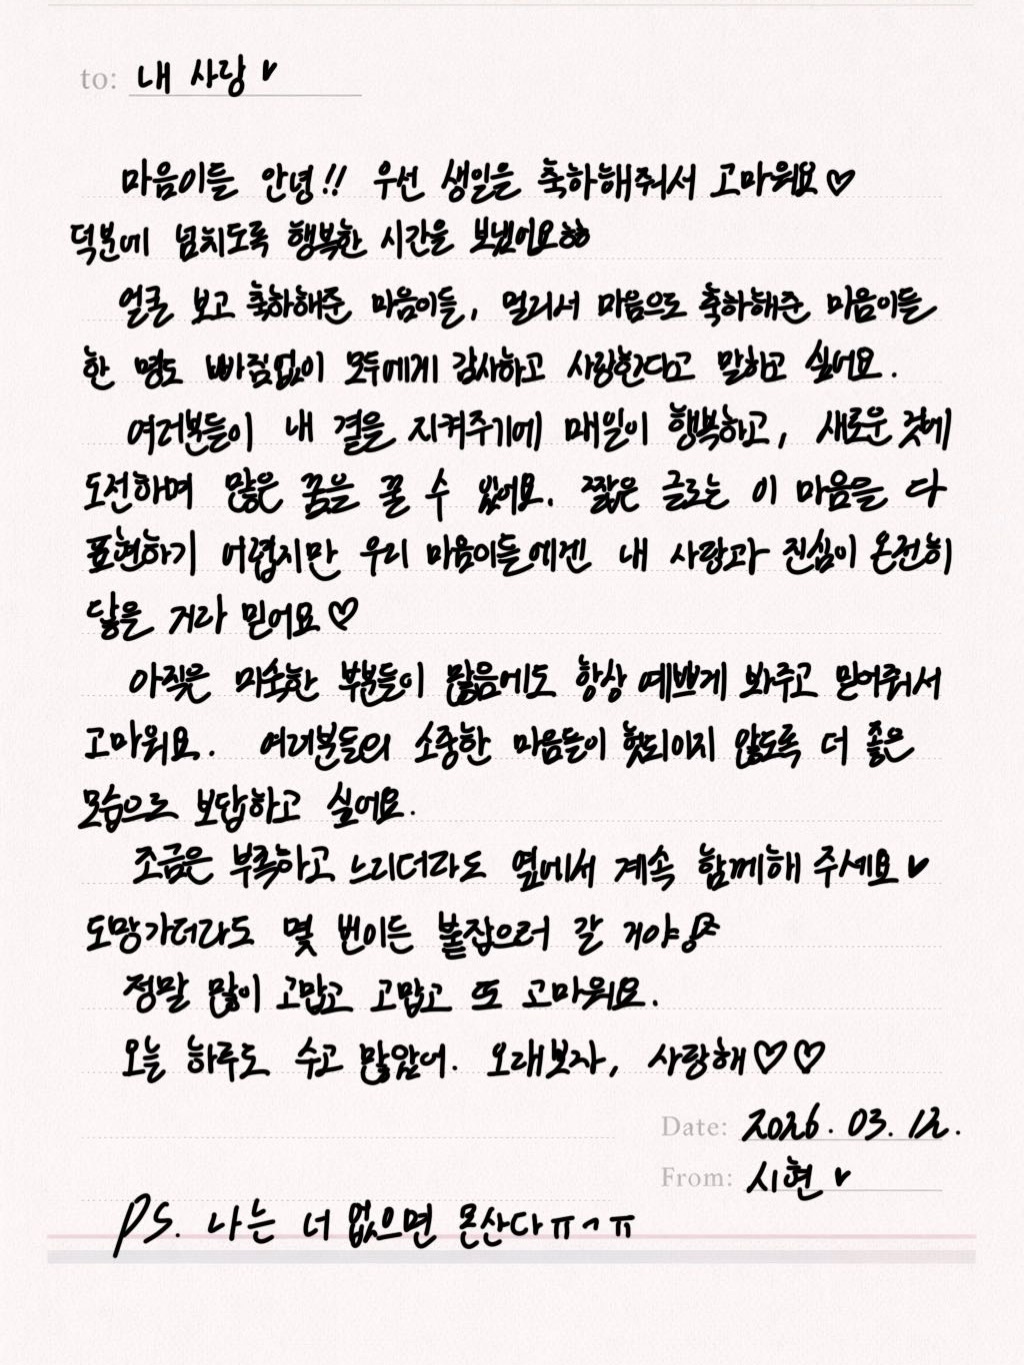 to: 내 사랑 ♥
마음이들 안녕!! 우선 생일을 축하해줘서 고마워요♡
덕분에 넘치도록 행복한 시간을 보냈어요ㅎㅎ
얼굴 보고 축하해준 마음이들, 멀리서 마음으로 축하해준 마음이들
한 명도 빠짐없이 모두에게 감사하고 사랑한다고 말하고 싶어요.
여러분들이 내 곁을 지켜주기에 매일이 행복하고, 새로운 것에
도전하며 많은 꿈을 꿀 수 있어요. 짧은 글로는 이 마음을 다
표현하기 어렵지만 우리 마음이들에겐 내 사랑과 진심이 온전히
닿을 거라 믿어요♡
아직은 미숙한 부분들이 많음에도 항상 예쁘게 봐주고 믿어줘서
고마워요. 여러분들의 소중한 마음들이 헛되이지 않도록 더 좋은
모습으로 보답하고 싶어요.
조금은 부족하고 느리더라도 옆에서 계속 함께해 주세요♥
도망가더라도 몇 번이든 붙잡으러 갈 거야
정말 많이 고맙고 고맙고 또 고마워요.
오늘 하루도 수고 많았어. 오래보자, 사랑해♡♡
Date: 2026. 03. 12.
From: 시현 ♥
PS. 나는 너 없으면 몬산다ㅠㅅㅠ